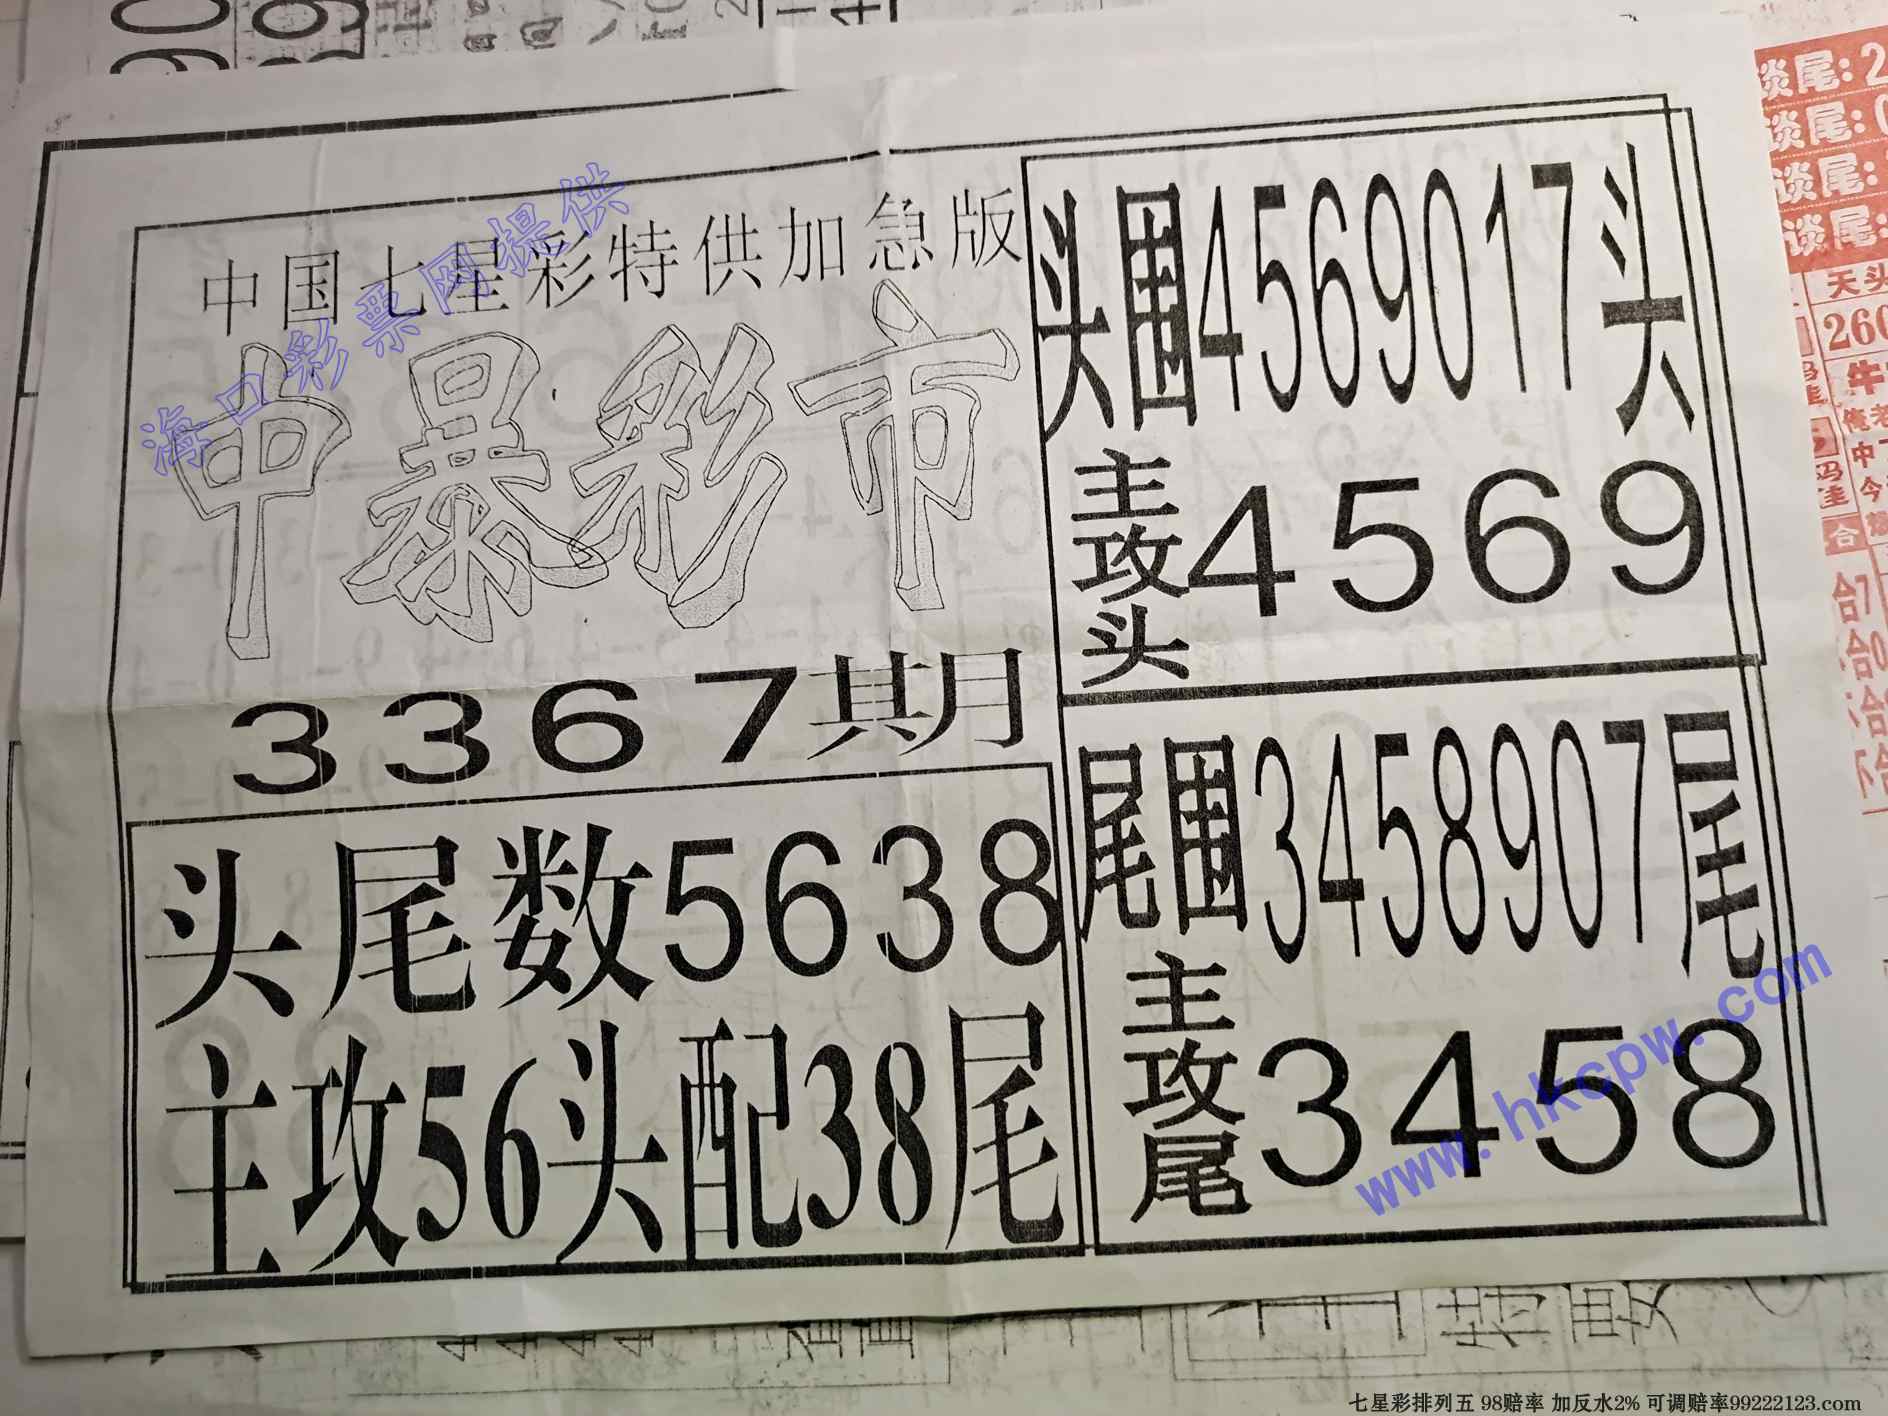 中国七星彩特供加急版
中暴彩市
3367期
头尾数5638
主攻56头配38尾
头围4569017头
主攻头4569
尾围3458907尾
主攻尾3458
海口彩票网提供
www.hkcpw.com
谈尾:2
谈尾:0
谈尾:
谈尾:
天头
260
合7
合0
七星彩排列五 98赔率 加反水2% 可调赔率99222123.com